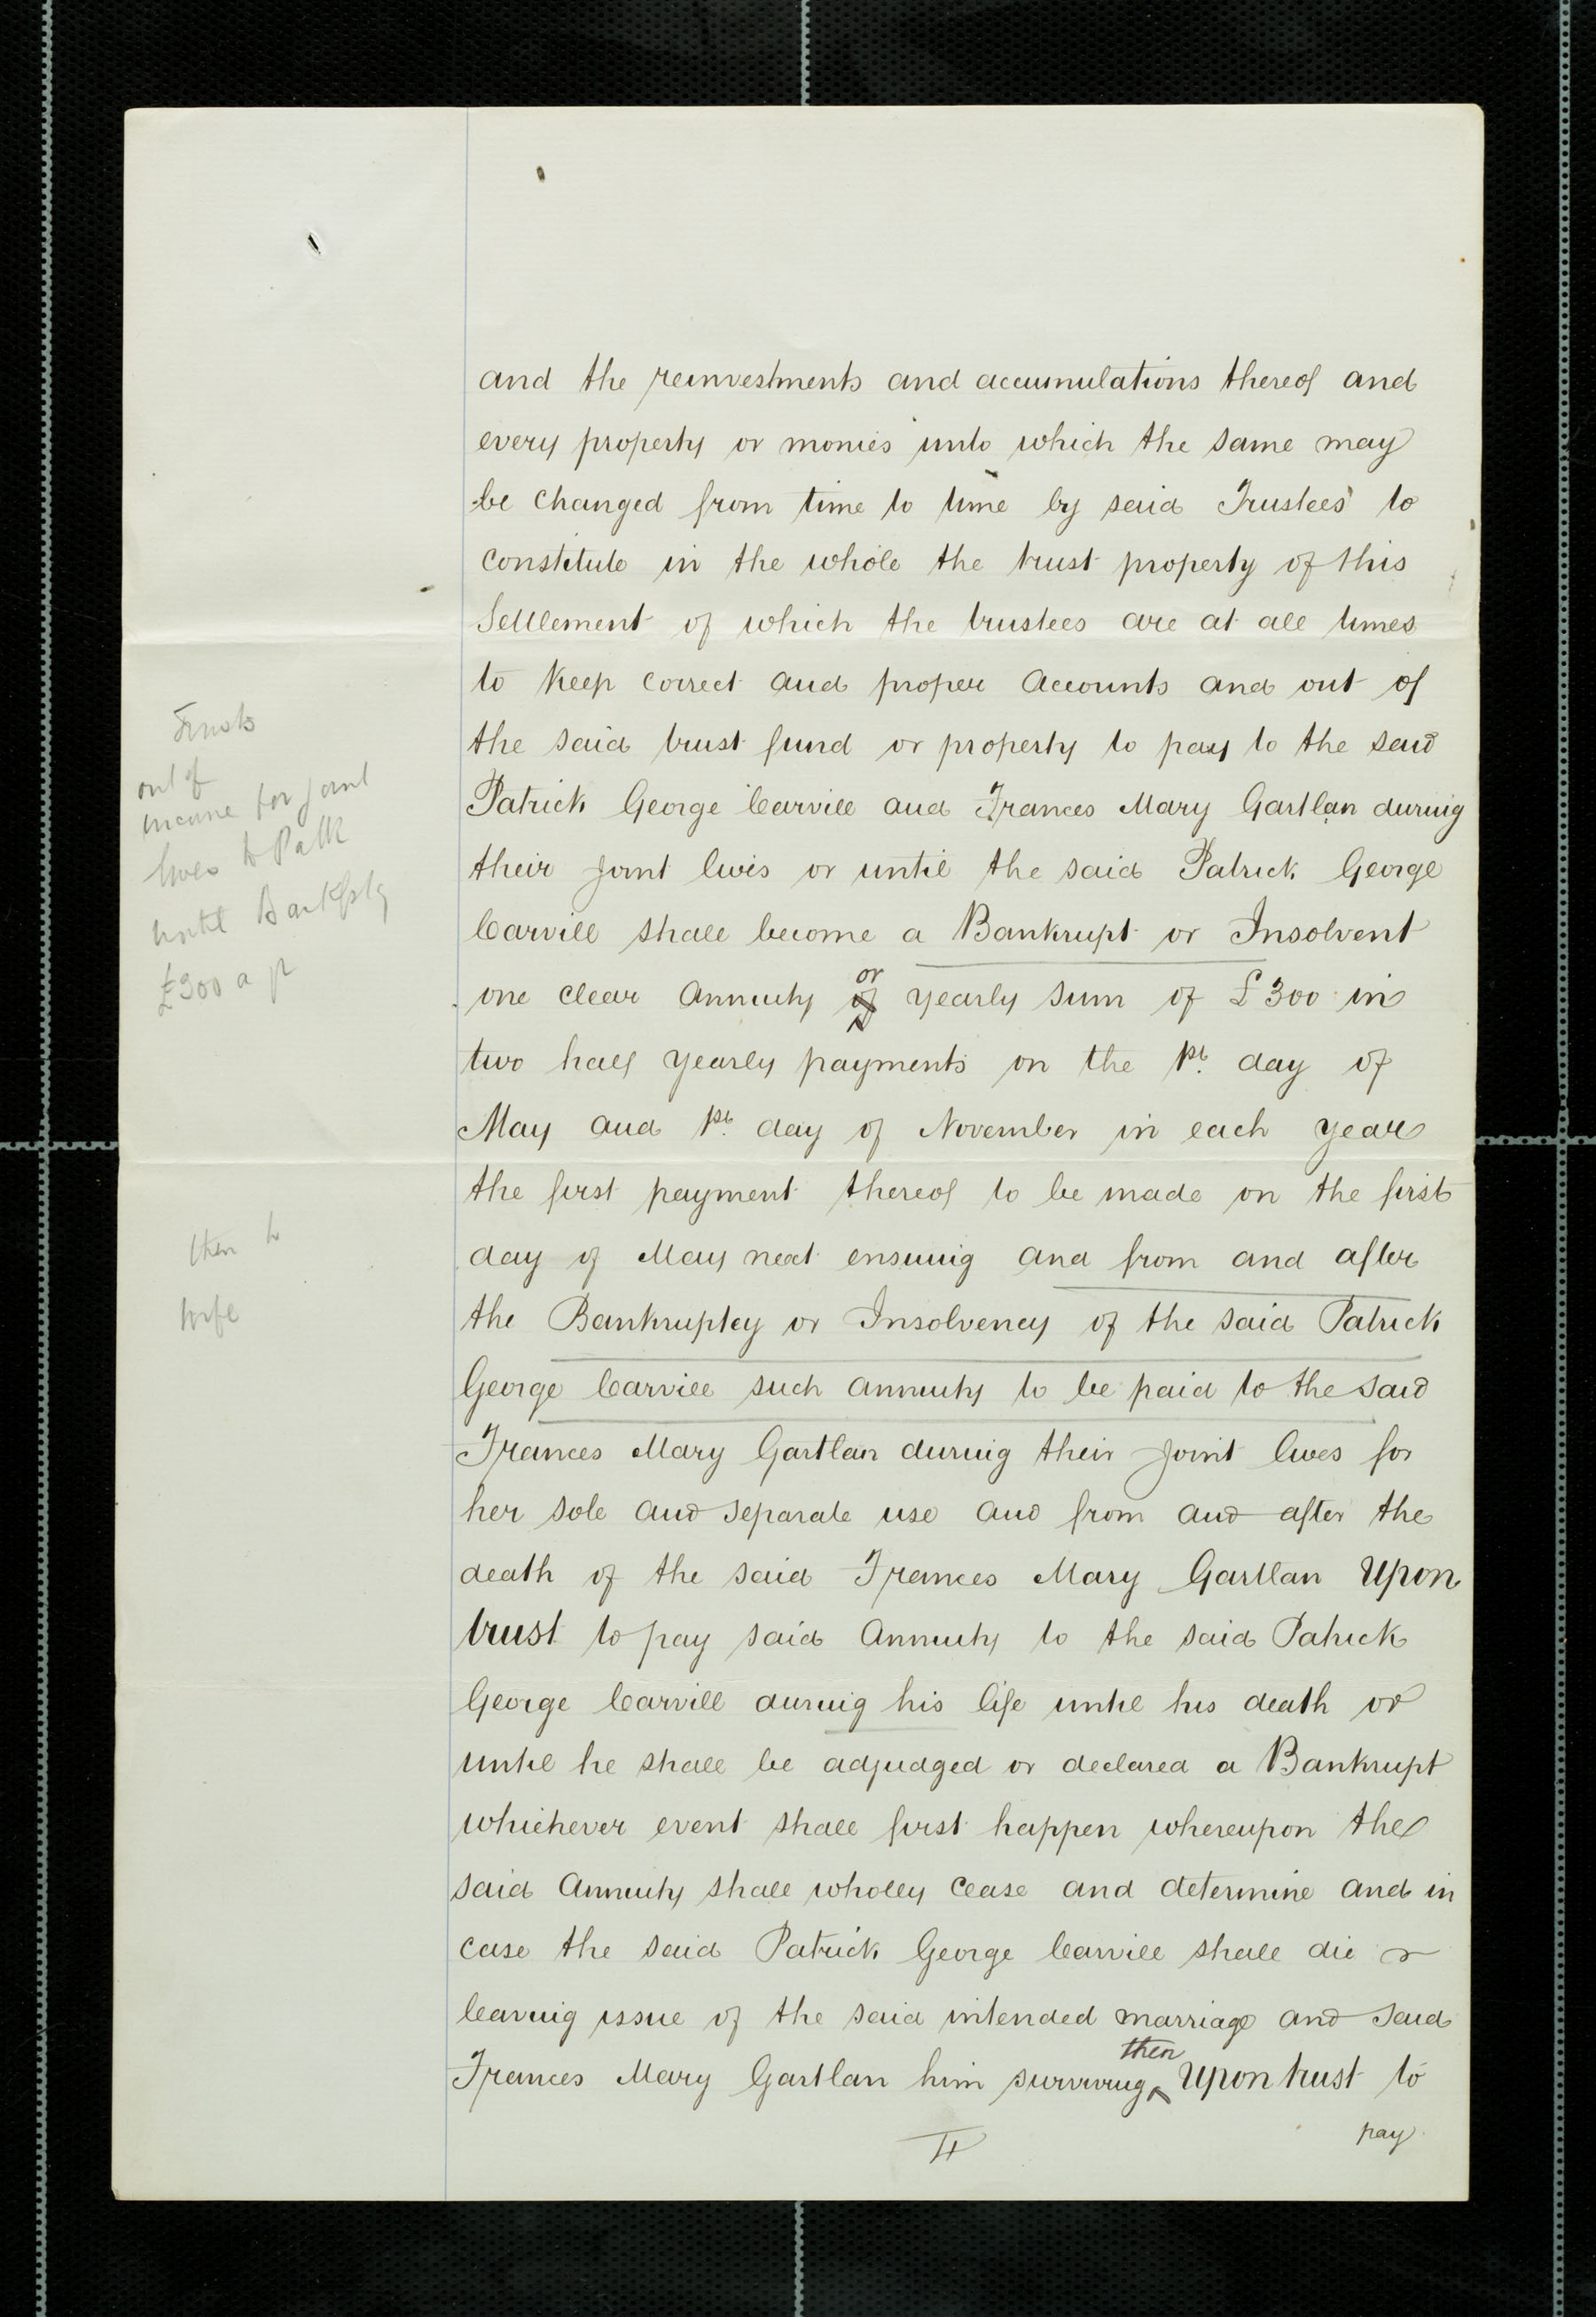 and the reinvestments and accumulations thereof and
every property or monies into which the same may
be changed from time to time by said Trustees to
constitute in the whole the trust property of this
Settlement of which the trustees are at all times
to keep correct and proper accounts and out of
the said trust fund or property to pay to the said
Patrick George Carvill and Frances Mary Gartlan during
their joint lives or until the said Patrick George
Carvill shall become a Bankrupt or Insolvent
or
one clear Annuity of yearly sum of £300 in
two half yearly payments on the 1st. day of
May and 1st. day of November in each year
the first payment thereof to be made on the first
day of May next ensuing and from and after
the Bankruptcy or Insolvency of the said Patrick
George Carvill such annuity to be paid to the said
Frances Mary Gartlan during their joint lives for
her sole and separate use and from and after the
death of the said Frances Mary Gartlan Upon
trust to pay said Annuity to the said Patrick
George Carvill during his life until his death or
until he shall be adjudged or declared a Bankrupt
whichever event shall first happen whereupon the
said Annuity shall wholly cease and determine and in
case the said Patrick George Carvill shall die
leaving issue of the said intended marriage and said
then
Frances Mary Gartlan him surviving Upon trust to
pay
Trusts
out of
income for joint
lives to Patk
until Bankrptcy
£300 a yr
then to
wife